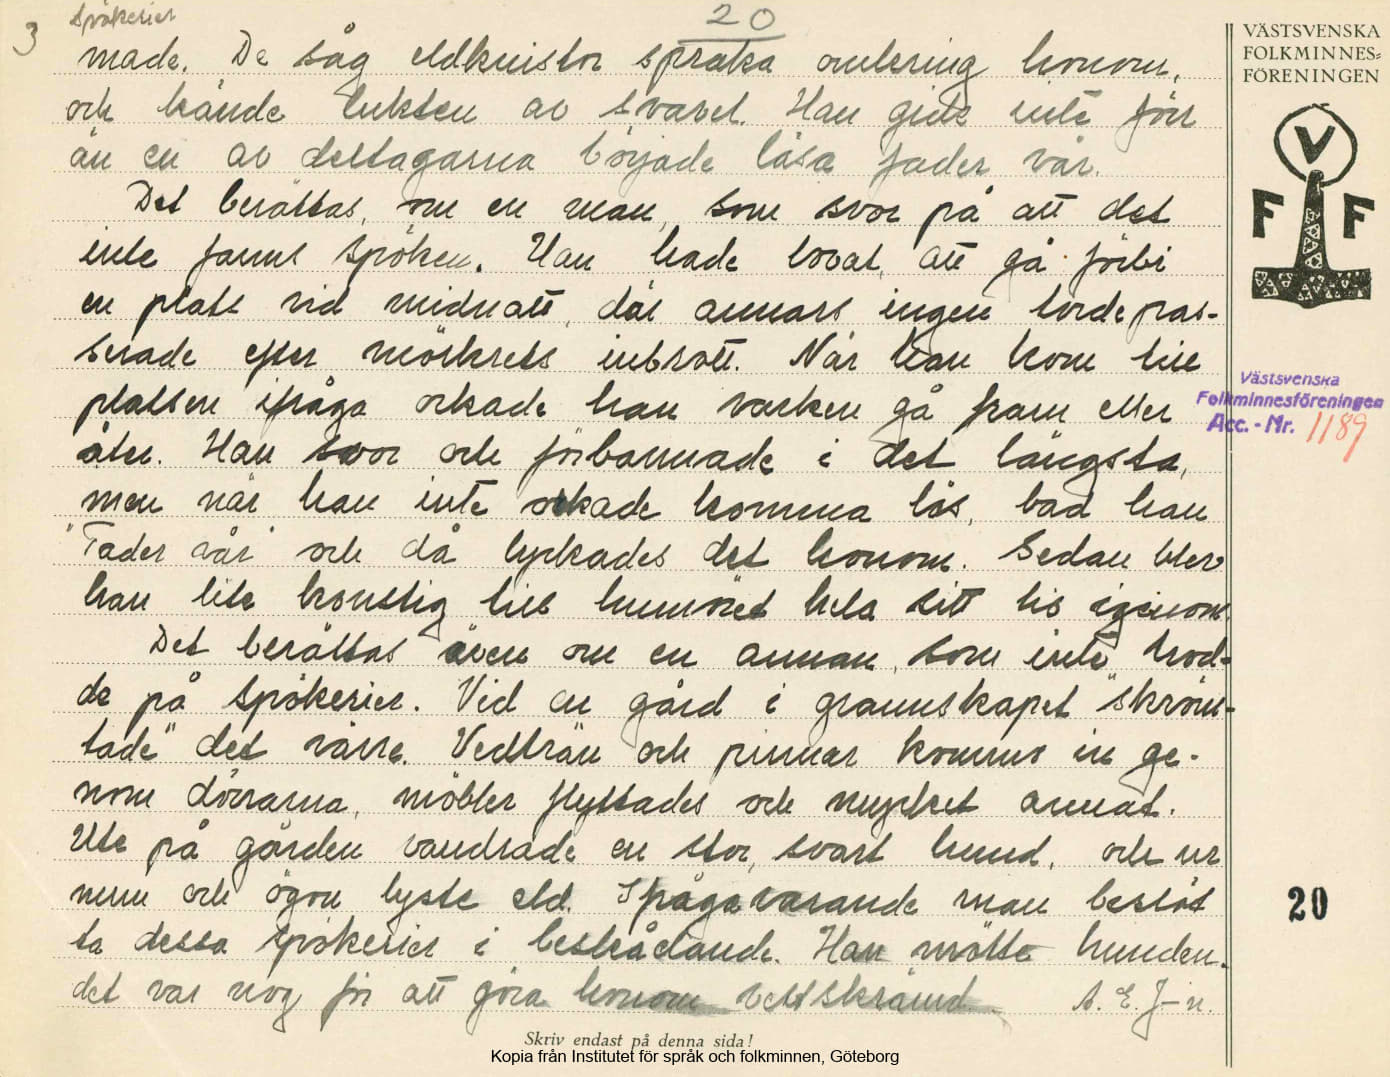 3
Spökerier
20
made. De såg eldknistor spraka omkring honom,
och kände lukten av svavel. Han gick inte förr
än en av deltagarna började läsa fader vår.
Det berättas, om en man, som svor på att det
inte fanns spöken. Han hade lovat, att gå förbi
en plats vid midnatt, där annars ingen torde pas-
serade efter mörkrets inbrott. När han kom till
platsen ifråga orkade han varken gå fram eller
åter. Han svor och förbannade i det längsta,
men när han inte orkade komma lös, bad han
"Fader vår" och då lyckades det honom. Sedan blev
han lite konstig till humöret hela sitt lis igenom.
Det berättas även om en annan, som inte trod-
de på spökerier. Vid en gård i grannskapet "skröm-
tade" det värre. Vedträn och pinnar kommo in ge-
nom dörrarna, möbler flyttades och mycket annat.
Ute på gården vandrade en stor, svart hund, och ur
mun och ögon lyste eld. Ifrågavarande man beslöt
ta dessa spökerier i beskådande. Han mötte hunden.
det var nog för att göra honom vettskrämd. A. E. J-n.
VÄSTSVENSKA
FOLKMINNES=
FÖRENINGEN
V
F F
Västsvenska
Folkminnesföreningen
Acc. - Nr. 1189
20
Skriv endast på denna sida!
Kopia från Institutet för språk och folkminnen, Göteborg